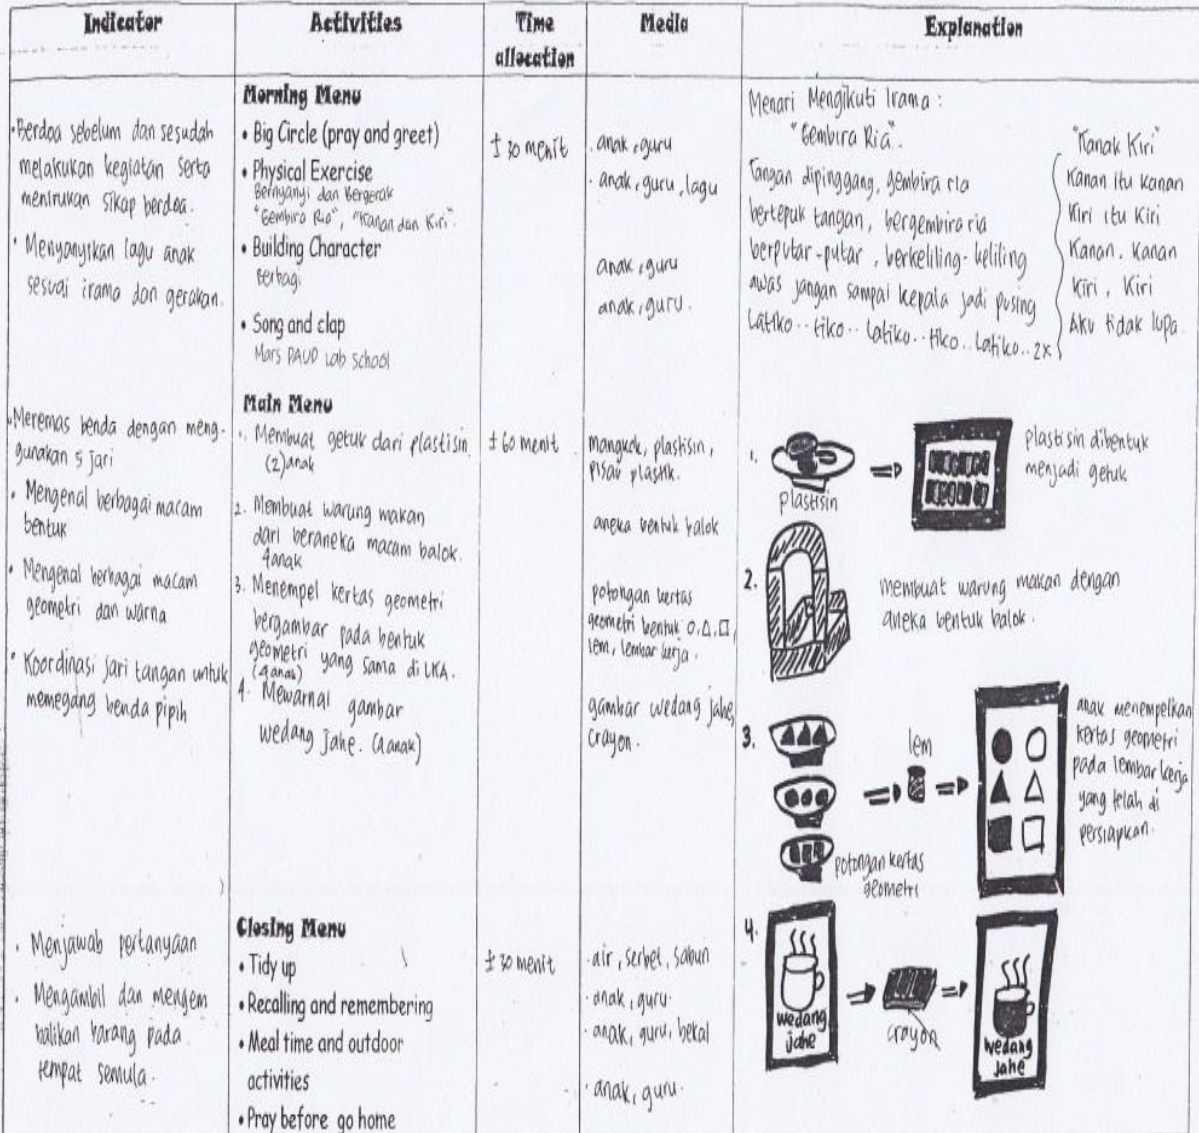 Indicator
Activities
Time
allocation
Media
Explanation
Morning Menu
• Berdoa sebelum dan sesudah
melakukan kegiatan serta
menirukan sikap berdoa.
• Menyanyikan lagu anak
sesuai irama dan gerakan.
• Big Circle (pray and greet)
• Physical Exercise
Bernyanyi dan Bergerak
"Gembira Ria", "Kanan dan Kiri".
• Building Character
Berbagi
• Song and clap
Mars PAUD Lab School
± 30 menit
. anak, guru
. anak, guru, lagu
anak, guru
anak, guru.
Menari Mengikuti Irama :
"Gembira Ria"..
Tangan dipinggang, gembira ria
bertepuk tangan, bergembira ria
berputar-putar, berkeliling-keliling
awas jangan sampai kepala jadi pusing
Latiko.. tiko.. Latiko.. tiko.. Latiko.. 2x
"Kanak Kiri"
Kanan itu kanan
Kiri itu Kiri
Kanan, Kanan
Kiri, Kiri
Aku tidak lupa.
Main Menu
• Meremas benda dengan meng-
gunakan 5 jari
• Mengenal berbagai macam
bentuk
• Mengenal berbagai macam
geometri dan warna
• Koordinasi jari tangan untuk
memegang benda pipih
1. Membuat getuk dari plastisin
(2) anak
2. Membuat warung makan
dari beraneka macam balok.
4 anak
3. Menempel kertas geometri
bergambar pada bentuk
geometri yang sama di LKA.
(4 anak)
4. Mewarnai gambar
wedang jahe. (4 anak)
± 60 menit
mangkok, plastisin,
pisau plastik.
aneka bentuk balok
potongan kertas
geometri bentuk O, △, □,
lem, lembar kerja.
gambar wedang jahe,
crayon.
1.
plastisin
plastisin dibentuk
menjadi getuk
2.
membuat warung makan dengan
aneka bentuk balok.
3.
lem
potongan kertas
geometri
anak menempelkan
kertas geometri
pada lembar kerja
yang telah di
persiapkan.
Closing Menu
. Menjawab pertanyaan
. Mengambil dan mengem
balikan barang pada
tempat semula.
• Tidy up
• Recalling and remembering
• Meal time and outdoor
activities
• Pray before go home
± 30 menit
. air, serbet, sabun
. anak, guru.
. anak, guru, bekal
. anak, guru.
4.
wedang
jahe
crayon
wedang
jahe